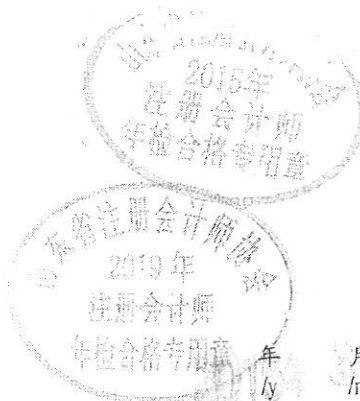 2015年
注册会计师
年检合格专用章
山东省注册会计师协会
2019年
注册会计师
年检合格专用章
年 月
/y